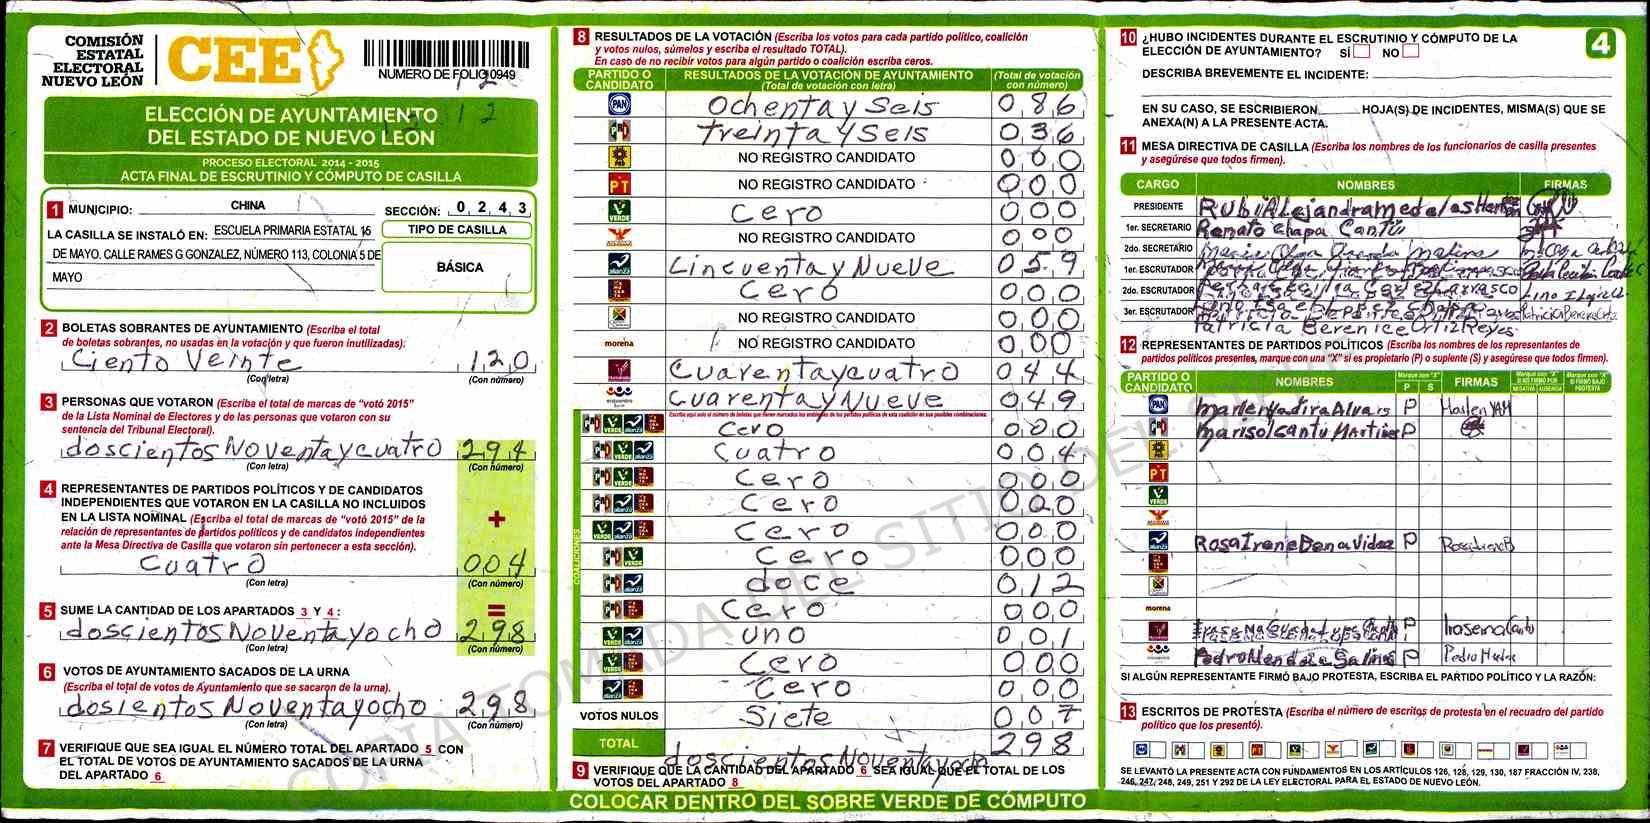 COMISIÓN
ESTATAL
ELECTORAL
NUEVO LEÓN
CEE
NUMERO DE FOLIO 0949
ELECCIÓN DE AYUNTAMIENTO
DEL ESTADO DE NUEVO LEÓN
PROCESO ELECTORAL 2014 - 2015
ACTA FINAL DE ESCRUTINIO Y CÓMPUTO DE CASILLA
1 MUNICIPIO: CHINA
SECCIÓN: 0 2 4 3
LA CASILLA SE INSTALÓ EN: ESCUELA PRIMARIA ESTATAL 15
DE MAYO. CALLE RAMES G GONZALEZ, NÚMERO 113, COLONIA 5 DE
MAYO
TIPO DE CASILLA
BÁSICA
2 BOLETAS SOBRANTES DE AYUNTAMIENTO (Escriba el total
de boletas sobrantes, no usadas en la votación y que fueron inutilizadas).
Ciento Veinte 120
(Con letra) (Con número)
3 PERSONAS QUE VOTARON (Escriba el total de marcas de "votó 2015"
de la Lista Nominal de Electores y de las personas que votaron con su
sentencia del Tribunal Electoral).
doscientos Noventaycuatro 294
(Con letra) (Con número)
4 REPRESENTANTES DE PARTIDOS POLÍTICOS Y DE CANDIDATOS
INDEPENDIENTES QUE VOTARON EN LA CASILLA NO INCLUIDOS
EN LA LISTA NOMINAL (Escriba el total de marcas de "votó 2015" de la
relación de representantes de partidos políticos y de candidatos independientes
ante la Mesa Directiva de Casilla que votaron sin pertenecer a esta sección).
+
Cuatro 004
(Con letra) (Con número)
=
5 SUME LA CANTIDAD DE LOS APARTADOS 3 Y 4 :
doscientos Noventa yocho 298
(Con letra) (Con número)
6 VOTOS DE AYUNTAMIENTO SACADOS DE LA URNA
(Escriba el total de votos de Ayuntamiento que se sacaron de la urna).
dosientos Noventayocho 298
(Con letra) (Con número)
7 VERIFIQUE QUE SEA IGUAL EL NÚMERO TOTAL DEL APARTADO 5 CON
EL TOTAL DE VOTOS DE AYUNTAMIENTO SACADOS DE LA URNA
DEL APARTADO 6
8 RESULTADOS DE LA VOTACIÓN (Escriba los votos para cada partido político, coalición
y votos nulos, súmelos y escriba el resultado TOTAL).
En caso de no recibir votos para algún partido o coalición escriba ceros.
PARTIDO O CANDIDATO RESULTADOS DE LA VOTACIÓN DE AYUNTAMIENTO (Total de votación con letra) (Total de votación con número)
PAN Ochenta y Seis 086
PRI treinta y Seis 036
PRD NO REGISTRO CANDIDATO 000
PT NO REGISTRO CANDIDATO 000
VERDE Cero 000
NO REGISTRO CANDIDATO 000
alianza Cincuenta y Nueve 059
Cero 000
NO REGISTRO CANDIDATO 000
morena NO REGISTRO CANDIDATO 000
Cuarentaycuatro 044
encuentro Cuarenta y Nueve 049
Escriba aquí solo el número de boletas que tienen marcados los emblemas de los partidos políticos de esta coalición en sus posibles combinaciones.
COALICIONES
Cero 000
Cuatro 004
Cero 000
Cero 000
Cero 000
Cero 000
doce 012
Cero 000
uno 001
Cero 000
Cero 000
VOTOS NULOS Siete 007
TOTAL doscientos Noventayocho 298
9 VERIFIQUE QUE LA CANTIDAD DEL APARTADO 6 SEA IGUAL QUE EL TOTAL DE LOS
VOTOS DEL APARTADO 8
COLOCAR DENTRO DEL SOBRE VERDE DE CÓMPUTO
10 ¿HUBO INCIDENTES DURANTE EL ESCRUTINIO Y CÓMPUTO DE LA
ELECCIÓN DE AYUNTAMIENTO? SI NO
4
DESCRIBA BREVEMENTE EL INCIDENTE:
EN SU CASO, SE ESCRIBIERON HOJA(S) DE INCIDENTES, MISMA(S) QUE SE
ANEXA(N) A LA PRESENTE ACTA.
11 MESA DIRECTIVA DE CASILLA (Escriba los nombres de los funcionarios de casilla presentes
y asegúrese que todos firmen).
CARGO NOMBRES FIRMAS
PRESIDENTE Rubi Alejandra
1er. SECRETARIO Renato Chapa Cantú
2do. SECRETARIO Maria Olga
1er. ESCRUTADOR
2do. ESCRUTADOR
3er. ESCRUTADOR
Patricia Berenice Ortiz Reyes
12 REPRESENTANTES DE PARTIDOS POLÍTICOS (Escriba los nombres de los representantes de
partidos políticos presentes, marque con una "X" si es propietario (P) o suplente (S) y asegúrese que todos firmen).
PARTIDO O CANDIDATO NOMBRES Marque con "X" P S FIRMAS
PAN P
PRI Marisol Cantu Martinez P
PRD
PT
VERDE
alianza Rosa Irene Benavidez P
morena
Pedro Mendoza Salinas P
SI ALGÚN REPRESENTANTE FIRMÓ BAJO PROTESTA, ESCRIBA EL PARTIDO POLÍTICO Y LA RAZÓN:
13 ESCRITOS DE PROTESTA (Escriba el número de escritos de protesta en el recuadro del partido
político que los presentó).
SE LEVANTÓ LA PRESENTE ACTA CON FUNDAMENTOS EN LOS ARTÍCULOS 126, 128, 129, 130, 187 FRACCIÓN IV, 238,
246, 247, 248, 249, 251 Y 292 DE LA LEY ELECTORAL PARA EL ESTADO DE NUEVO LEÓN.
COPIA TOMADA DEL SITIO DEL SIPRE